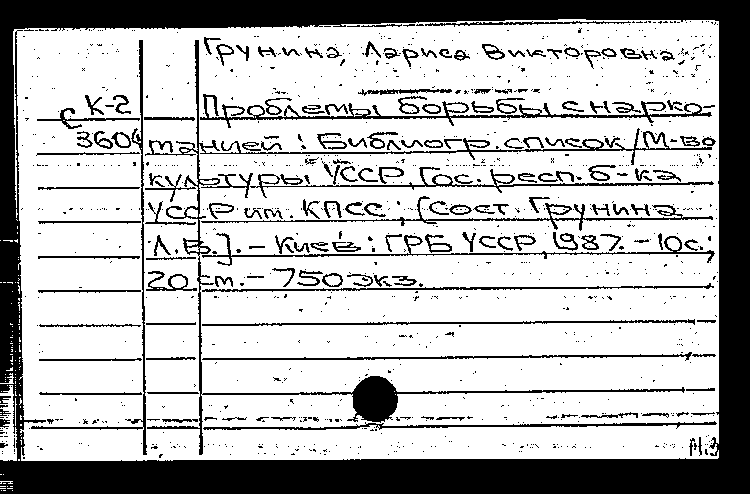 Грунина, Лариса Викторовна.
с К-2 Проблемы борьбы с нарко-
3604 манией : Библиогр. список / М-во
культуры УССР, Гос. респ. б-ка
УССР им. КПСС ; [Сост. Грунина
Л.В.]. – Киев : ГРБ УССР, 1987. – 10 с.;
20 см. – 750 экз.